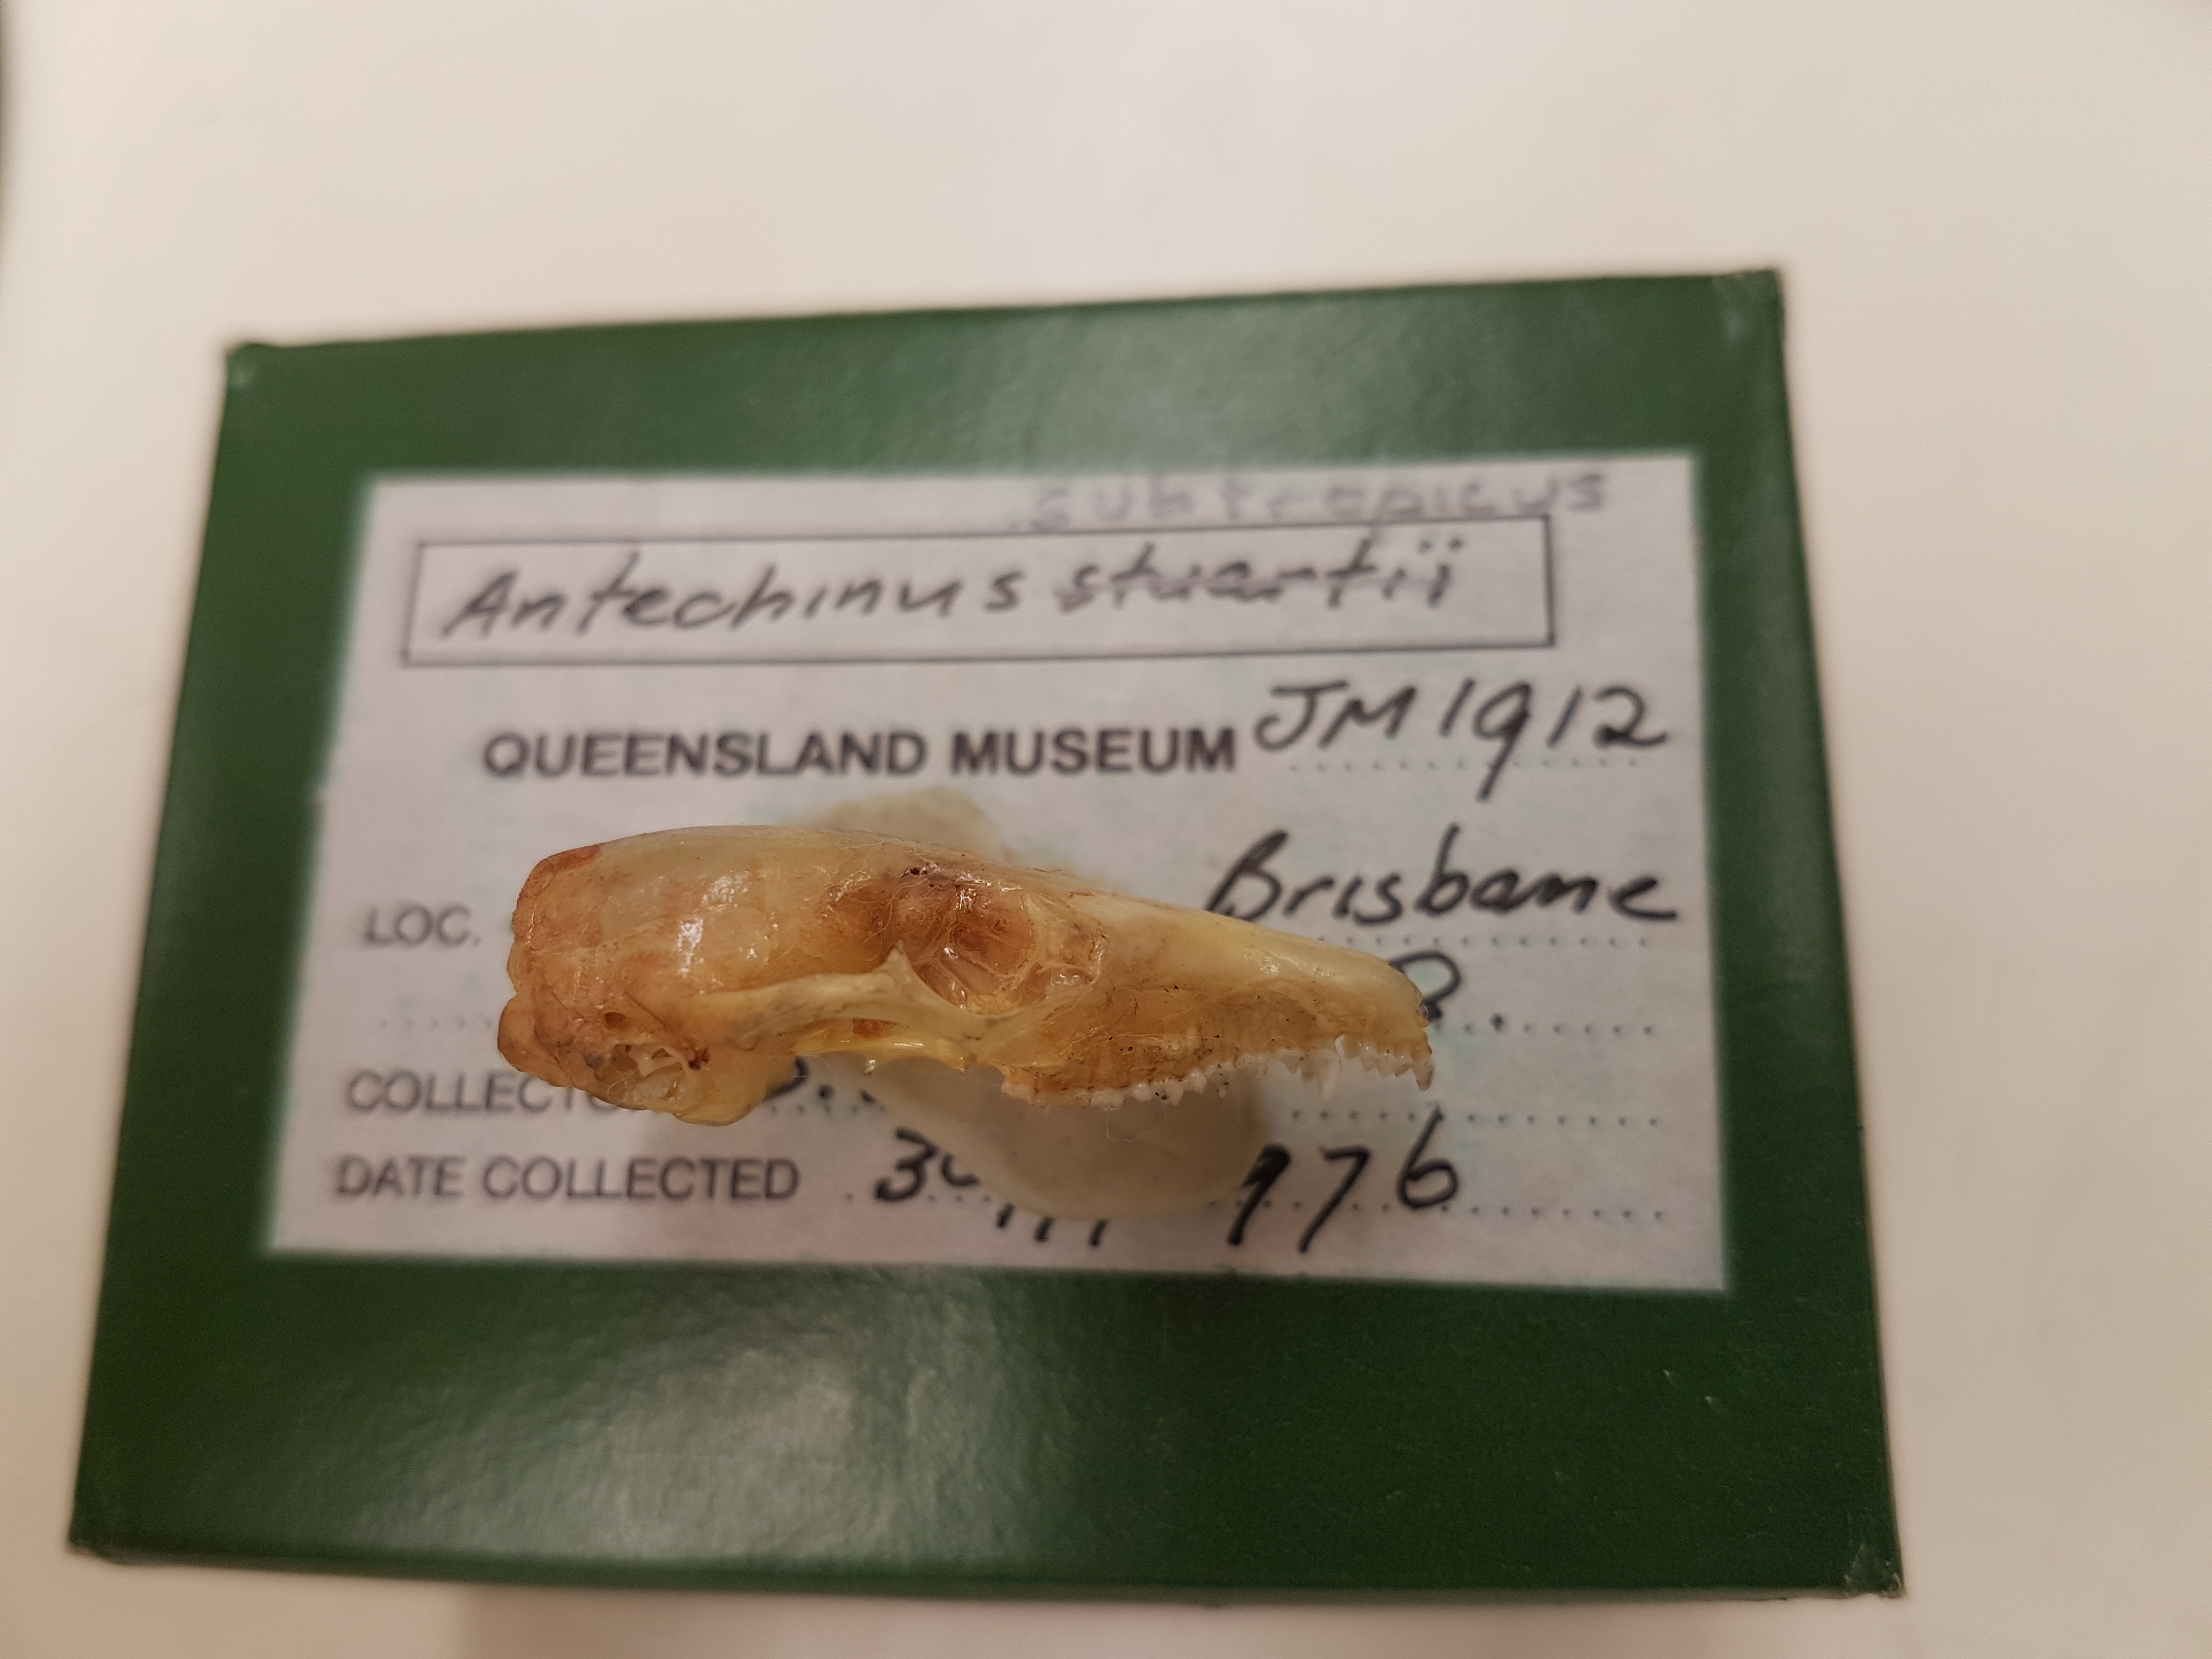 subtropicus
Antechinus stuartii
QUEENSLAND MUSEUM JM1912
LOC. Brisbane
DATE COLLECTED